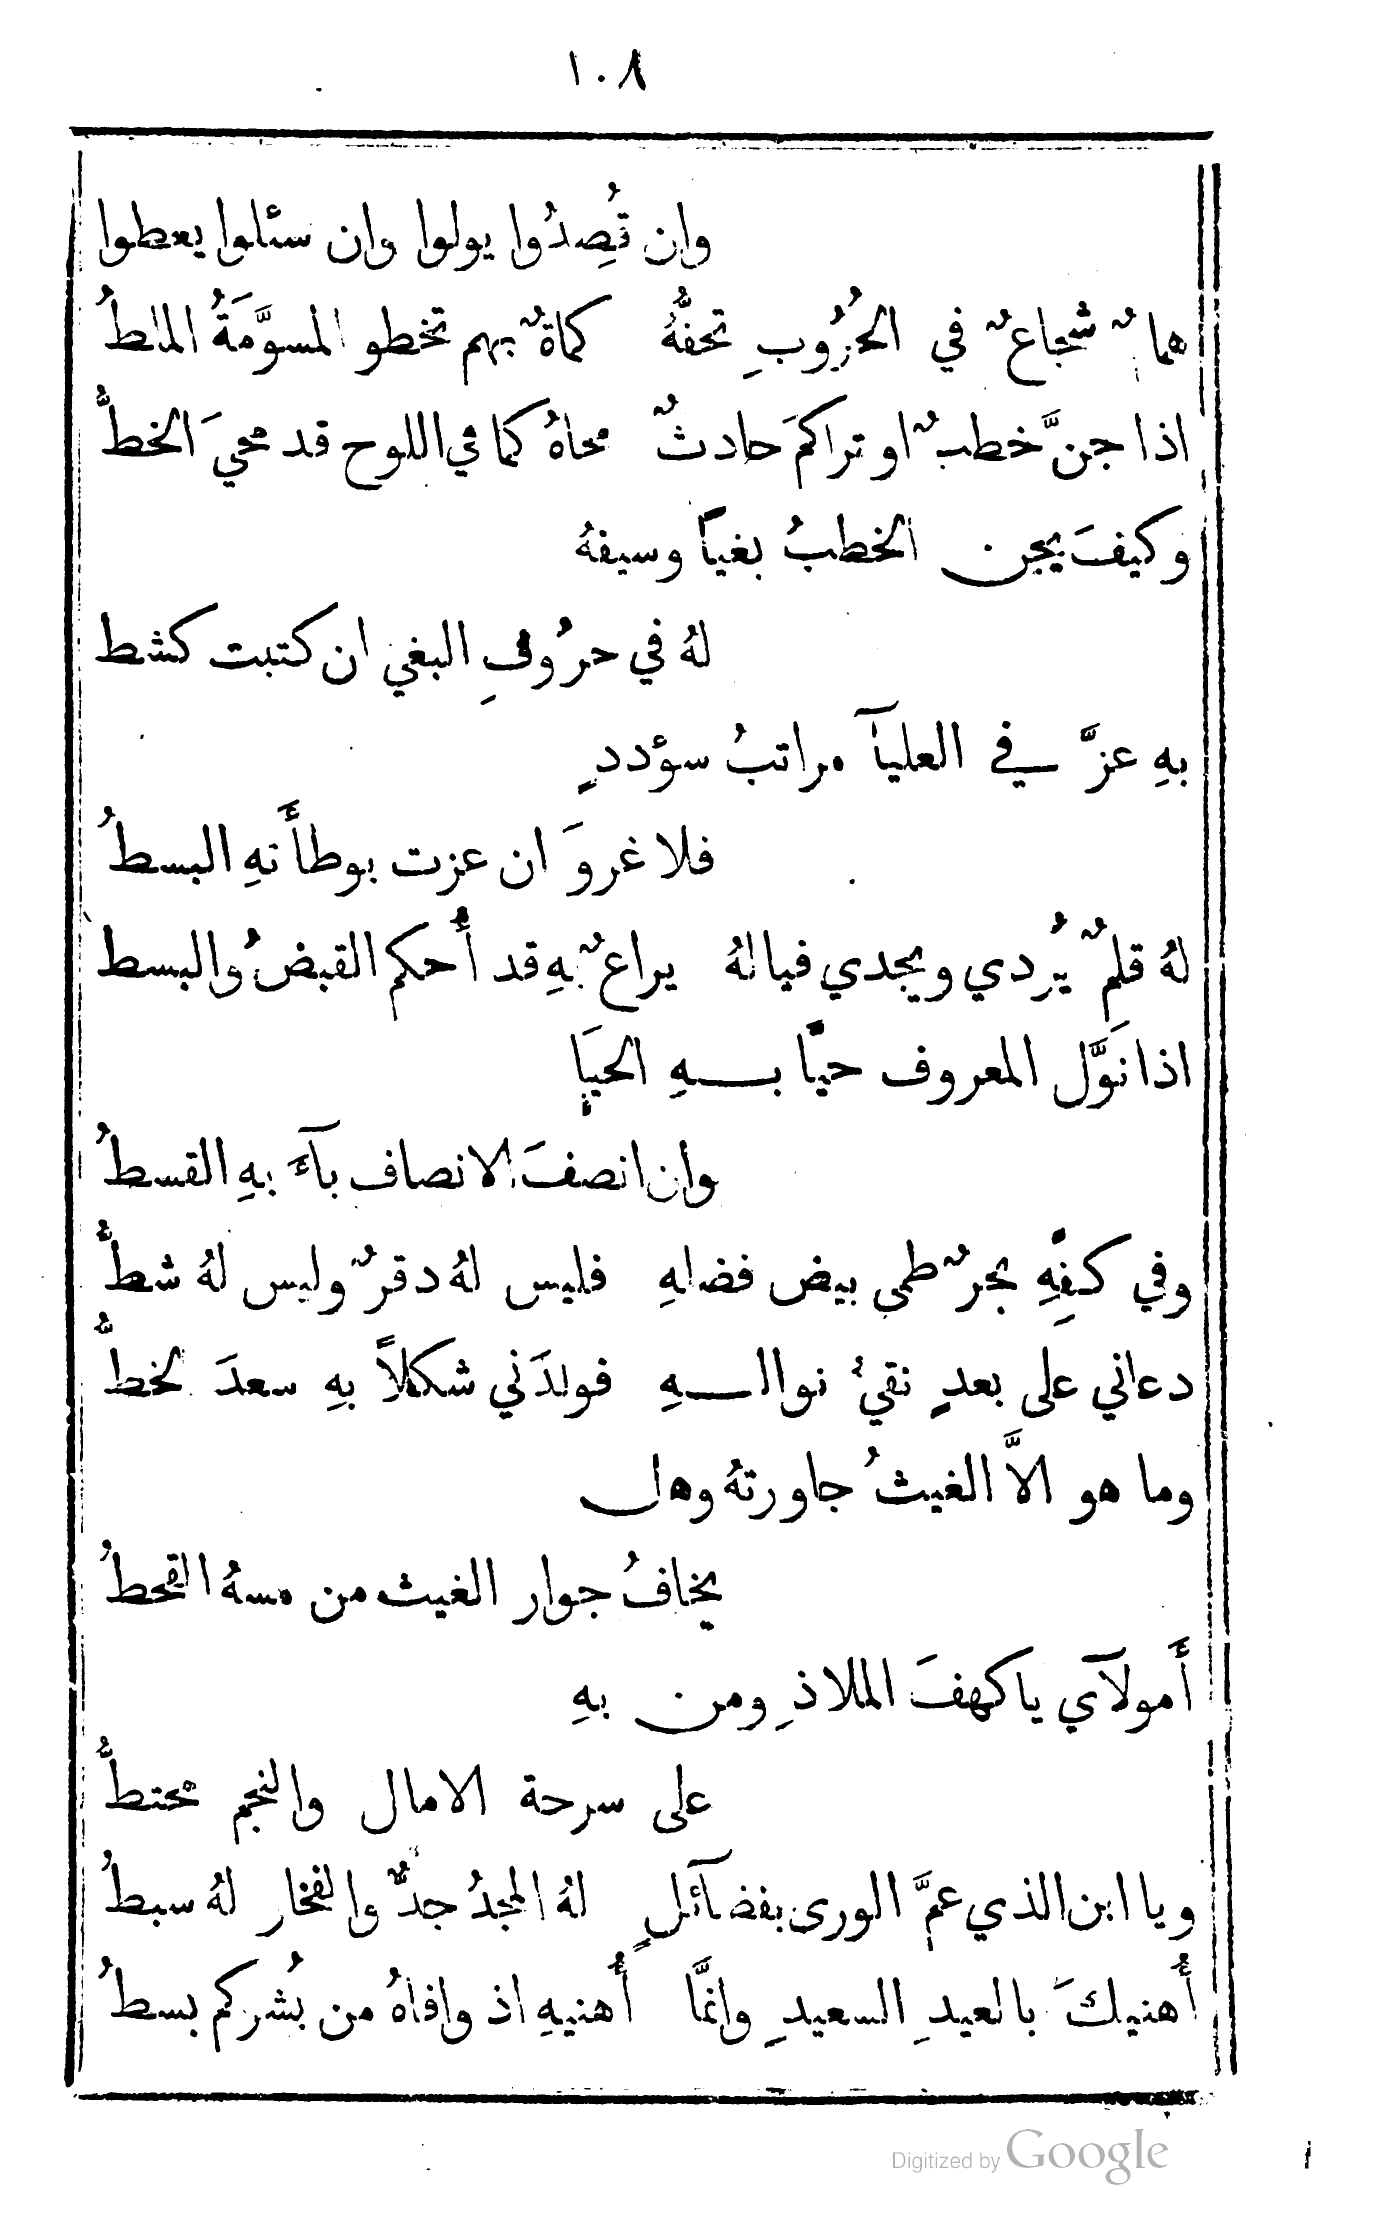 ١٠٨
وان تُصِدُوا يولوا وان سئلوا يعطوا
همامٌ شجاعٌ في الحُرُوبِ تحفُّهُ كماةٌ بهم تخطو المسوَّمَةُ الملطُ
اذا جنَّ خطبٌ او تراكمَ حادثٌ محاهُ كما في اللوح قد محيَ الخطُّ
وكيفَ يجن الخطبُ بغياً وسيفهُ
لهُ في حرُوفِ البغي ان كتبت كشط
بهِ عزَّ في العليآ مراتبُ سؤددٍ
فلا غروَ ان عزت بوطأَتهِ البسطُ
لهُ قلمٌ يُردي ويجدي فيا لهُ يراعٌ بهِ قد أُحكم القبضُ والبسط
اذا نَوَّل المعروف حيًّا بهِ الحيَا
وان انصفَ الانصاف بآءَ بهِ القسطُ
وفي كفِّهِ بحرٌ طمى بيض فضلهِ فليس لهُ دقرٌ وليس لهُ شطُّ
دعاني على بعدٍ نقيُ نوالهِ فولدَني شكلاً بهِ سعدَ الخطُّ
وما هو الاَّ الغيثُ جاورتهُ وهل
يخافُ جوار الغيث من مسهُ القحطُ
أَمولآي يا كهفَ الملاذِ ومن بهِ
على سرحة الامال والنجم مختطُّ
ويا ابن الذي عمَّ الورى بفضآئلٍ لهُ المجدُ جدٌّ والفخار لهُ سبطُ
أُهنيكَ بالعيدِ السعيدِ وانمَّا أُهنيهِ اذ وافاهُ من بُشركم بسطُ
Digitized by Google